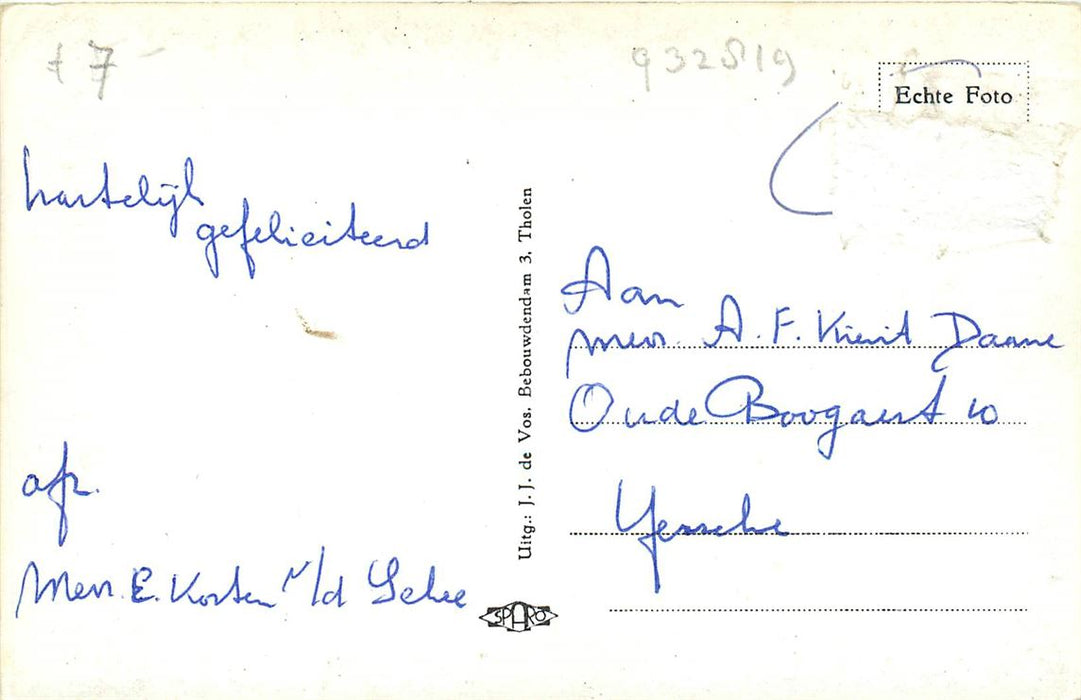 t 7
932819
Echte Foto
hartelijk
gefeliciteerd
afz.
Mevr. E. Korten v/d Schee
Uitg.: J. J. de Vos. Bebouwdendam 3, Tholen
SPARO
Aan
mevr. A. F. Kievit Daane
Oude Boogaert 10
Yerseke